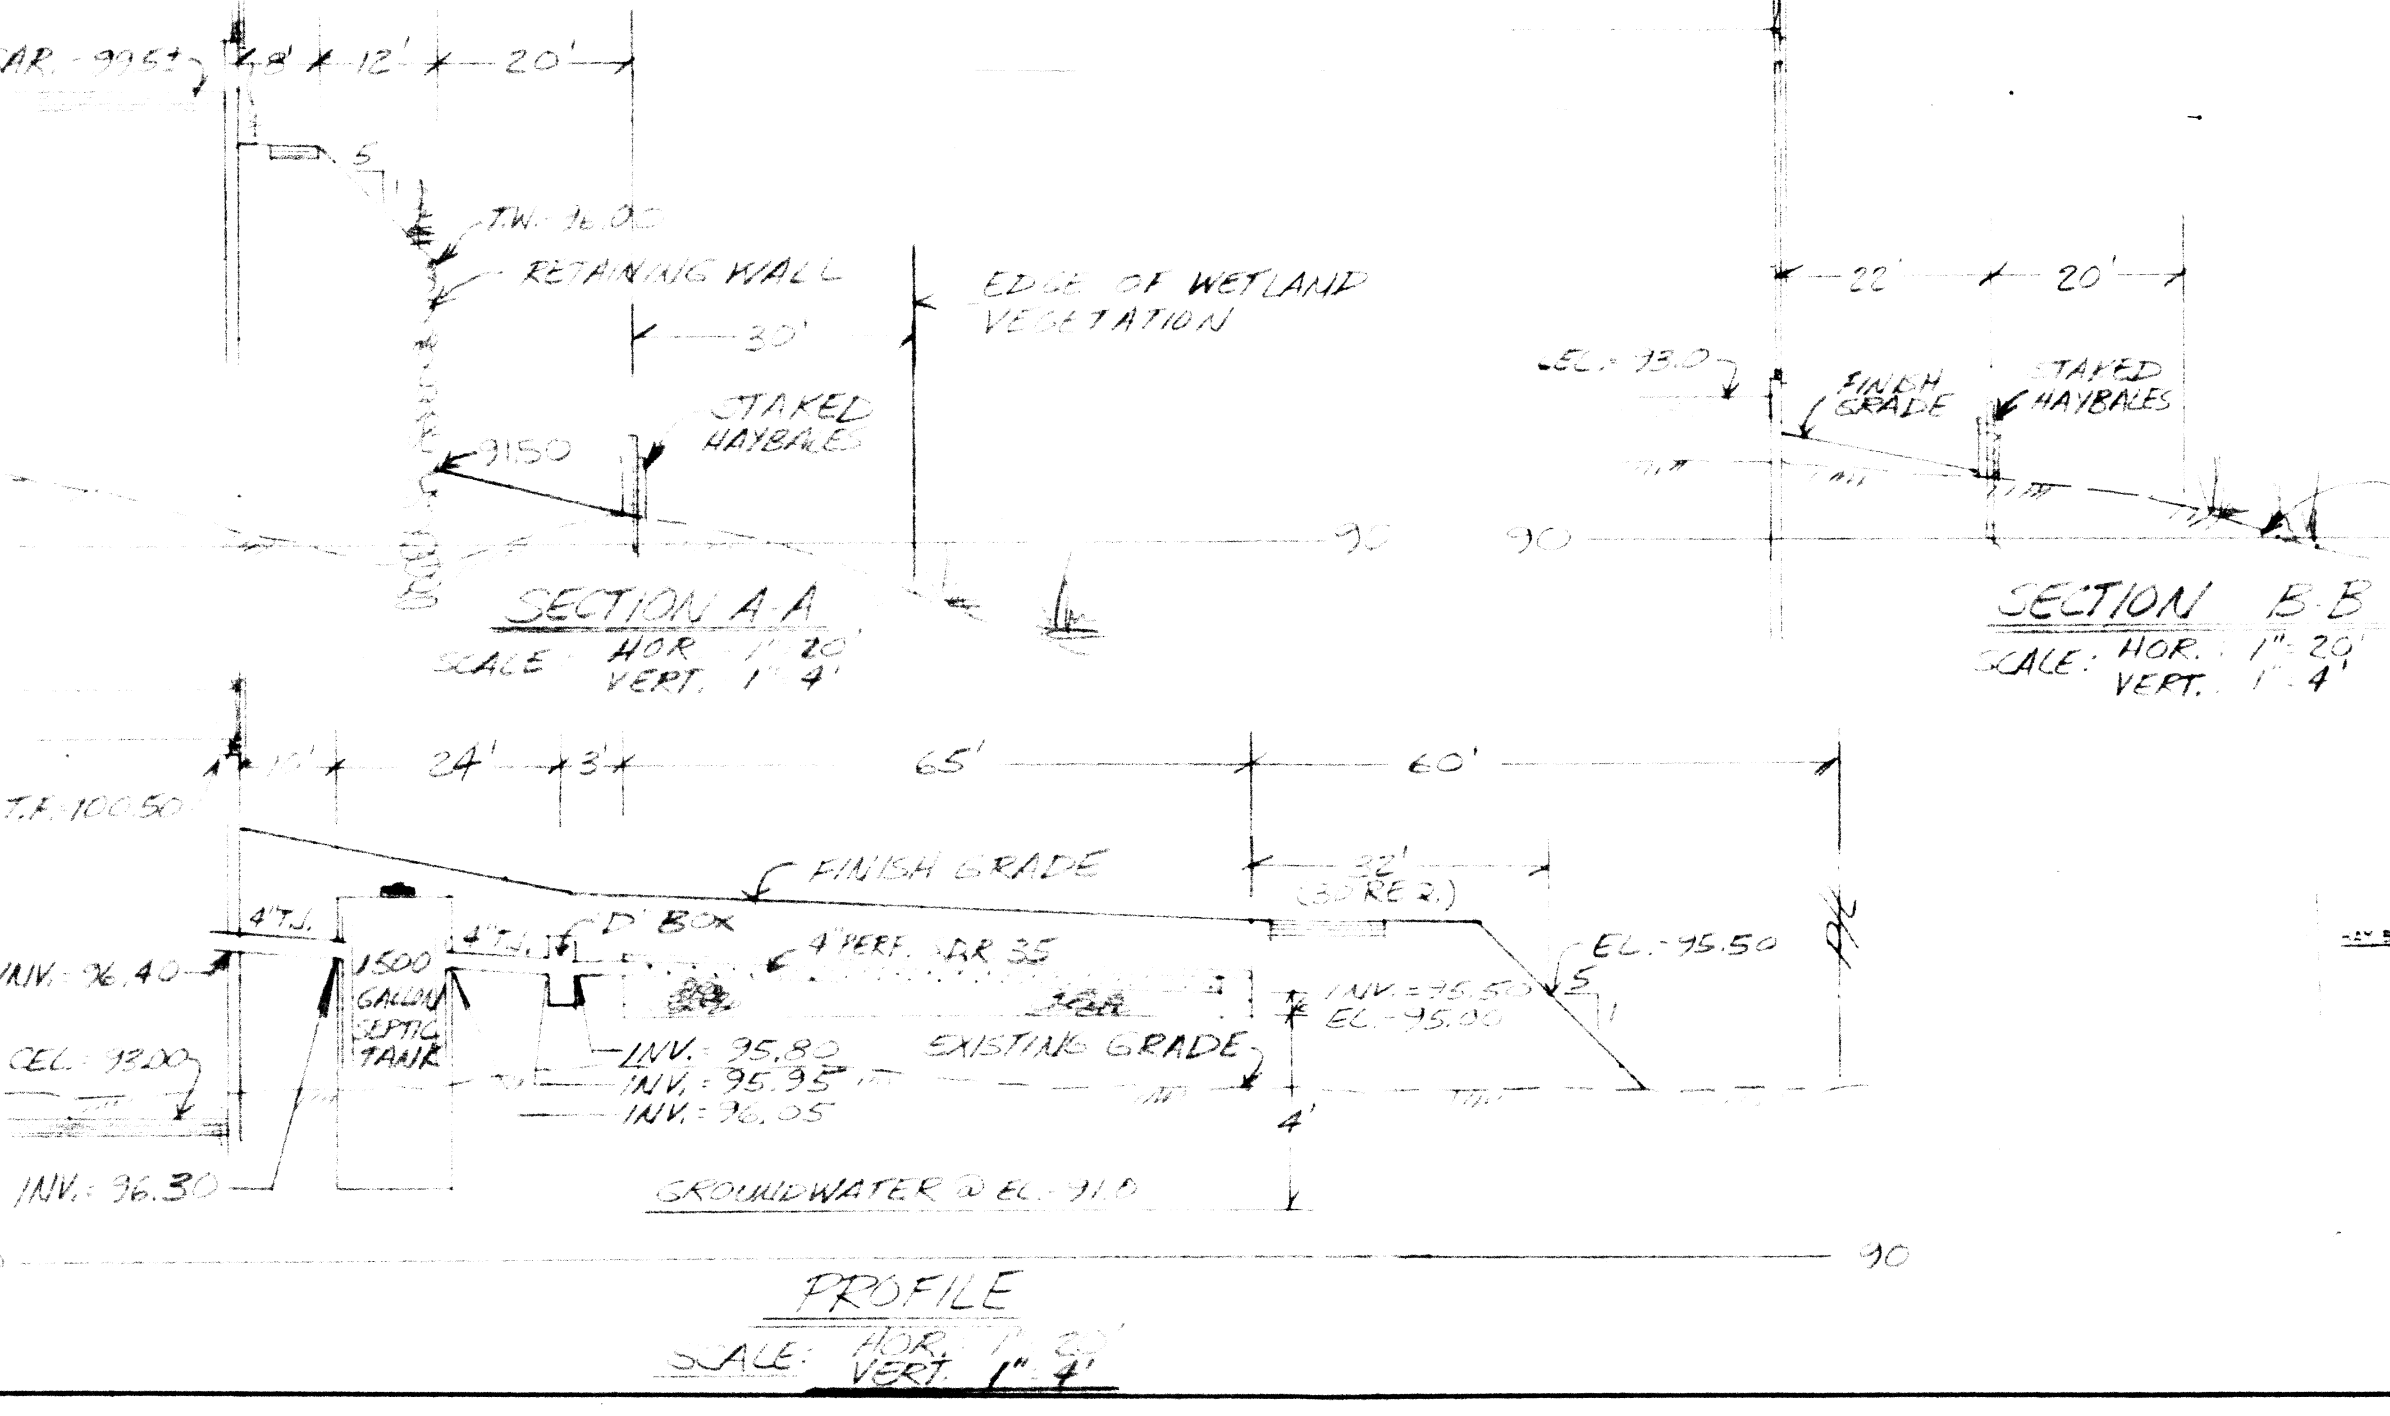 GAR. - 99.5±
8' 12' 20'
5
1
T.W. - 96.00
RETAINING WALL
EDGE OF WETLAND
VEGETATION
30'
STAKED
HAYBALES
91.50
90
SECTION A-A
SCALE: HOR. 1" = 20'
VERT. 1" = 4'
22' 20'
CEL. = 93.0
FINISH
GRADE
STAKED
HAYBALES
90
SECTION B-B
SCALE: HOR. : 1" = 20'
VERT. : 1" = 4'
10' 24' 3' 65' 60'
T.F. - 100.50
FINISH GRADE
32'
(30 REQ.)
4" T.J.
4" T.J.
'D' BOX
4" PERF. SDR 35
EL. - 95.50
5
1
P/L
INV. = 96.40
1500
GALLON
SEPTIC
TANK
INV. = 95.50
EL. - 95.00
CEL. = 93.00
INV. = 95.80
INV. = 95.95
INV. = 96.05
EXISTING GRADE
4'
INV. = 96.30
GROUNDWATER @ EL. - 91.0
90
PROFILE
SCALE: HOR. 1" = 20'
VERT. 1" = 4'